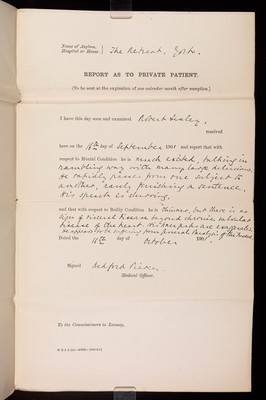 Name of Asylum,
Hospital or House } The Retreat, York.
REPORT AS TO PRIVATE PATIENT.
(To be sent at the expiration of one calendar month after reception.)
I have this day seen and examined Robert
received
here on the 16th day of September 190 and report that with
respect to Mental Condition he is much excited, talking in
rambling way with many large delusions.
He rapidly passes from one subject to
another, rarely finishing a sentence.
His speech is slurring.
and that with respect to Bodily Condition he is thinner, but there is no
sign of visceral disease beyond chronic valvular
disease of the heart. His knee jerks are exaggerated.
He appears to be suffering from General Paralysis of the Insane
Dated the 16th day of October 190
Signed Bedford Pierce
Medical Officer.
To the Commissioners in Lunacy.